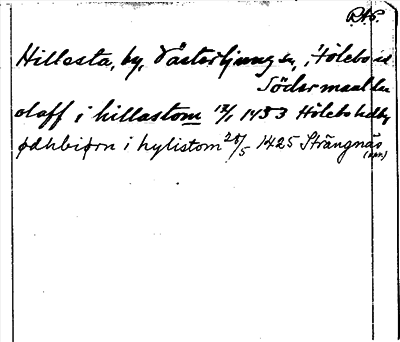 RAP.
Hillesta, by, Västerljungs sn, Hölebo hd
Södermanl. län
olaff i hillastom 12/1 1453 Hölebo hdby
ødhbiørn i hylistom 28/5 1425 Strängnäs
(avr.)